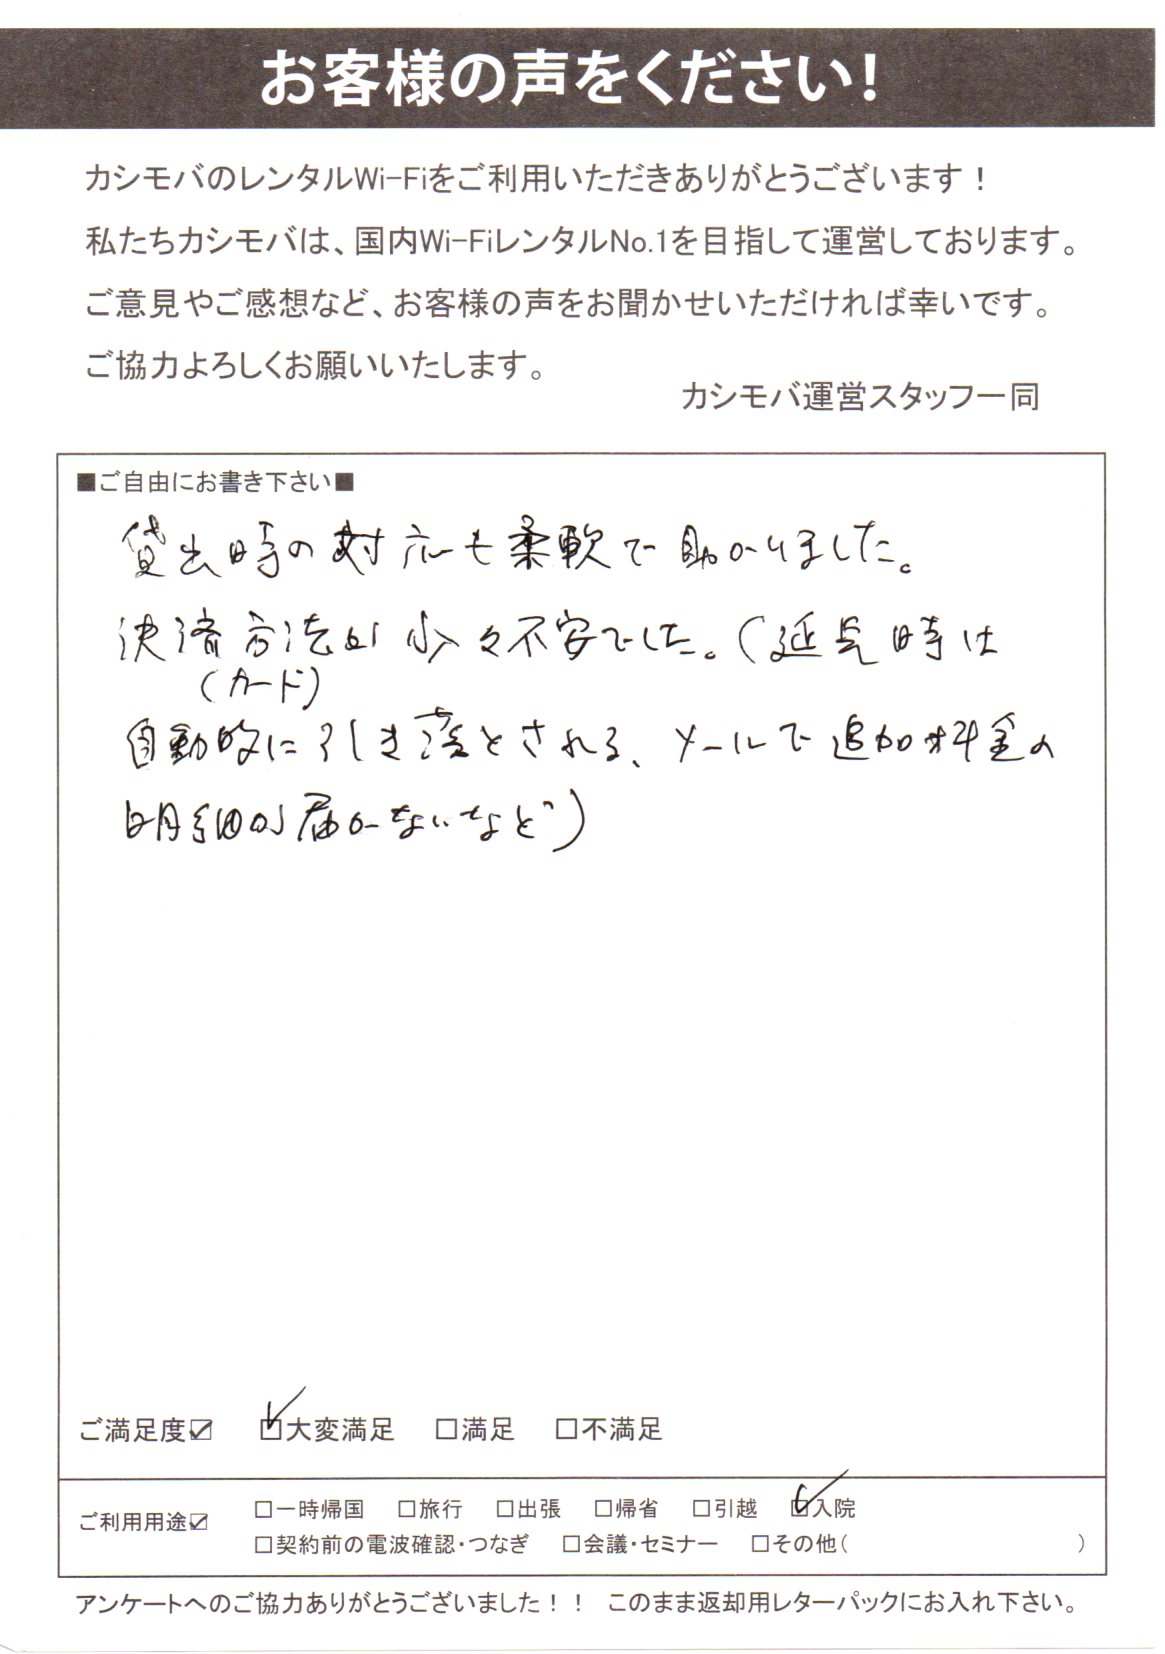 お客様の声をください!
カシモバのレンタルWi-Fiをご利用いただきありがとうございます！
私たちカシモバは、国内Wi-FiレンタルNo.1を目指して運営しております。
ご意見やご感想など、お客様の声をお聞かせいただければ幸いです。
ご協力よろしくお願いいたします。
カシモバ運営スタッフ一同
■ご自由にお書き下さい■
貸出時の対応も柔軟で助かりました。
決済方法が少々不安でした。(延長時は
(カード)
自動的に引き落とされる、メールで追加料金の
明細が届かないなど)
ご満足度☑ ☑大変満足 □満足 □不満足
ご利用用途☑ □一時帰国 □旅行 □出張 □帰省 □引越 ☑入院
□契約前の電波確認・つなぎ □会議・セミナー □その他( )
アンケートへのご協力ありがとうございました！！ このまま返却用レターパックにお入れ下さい。